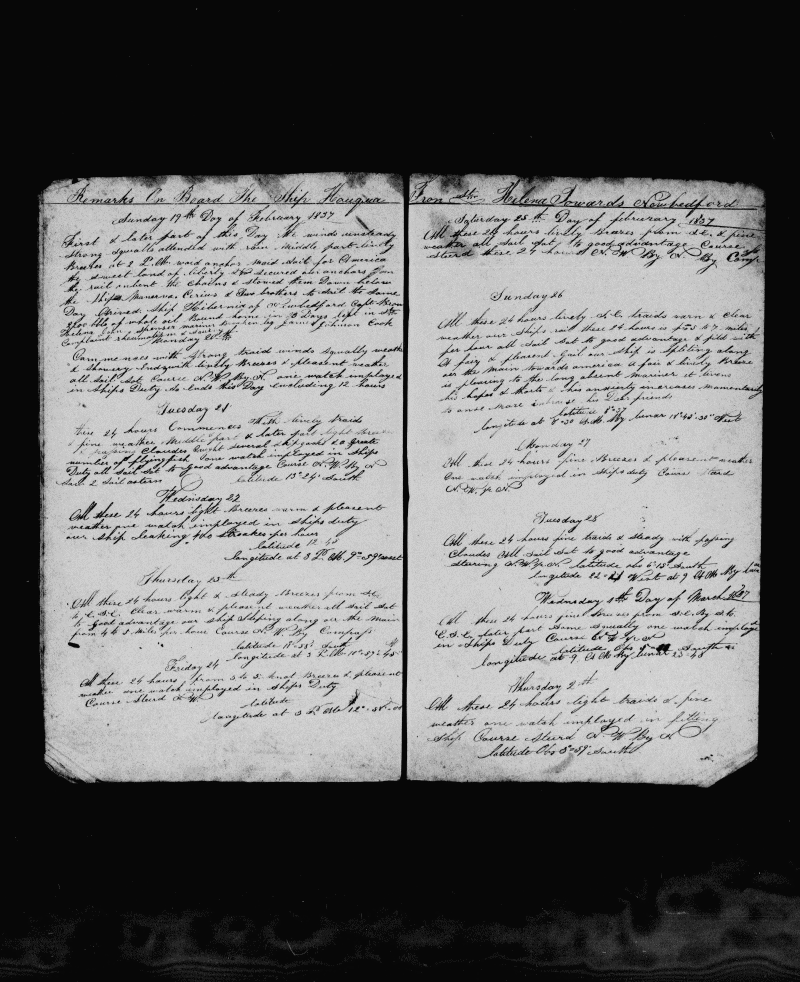 Remarks On Board The Ship Houqua
Sunday 19th Day of February 1837
First & later part of this Day the winds unsteady
Strong Squalls attended with rain Middle part lively
Breezes at 2 P.M. waid anchor Maid Sail for America
the Sweet land of liberty & secured our anchors from
the rail unbent the Chains & Stowed them Down below
the Ships Minerva. & Two brothers to Sail the Same
Day Arived. Ship Hibernia of Newbedford Capt
of whole oil Bound home in 10 Days left in St
Helena John Spenser
Complaint rheumatism Johnson Cook
Monday 20th
Commences with Strong traid winds Squally weather
& Showery Ends with lively Breezes & pleasent weather
all Sail Set Course N.W. By N. one watch imployed
in Ships Duty So Ends this Day Excluding 12 hours
Tuesday 21
these 24 hours Commences With lively traids
& fine weather Middle part & later part light Breeze
& Cloudes Caught Several & a Greate
number of flyingfish one watch imployed in Ships
Duty all Sail Set to Good advantage Course N.W. By N
Saw 2 Sail astern latitude 13° 24' South
Wednesday 22
All these 24 hours light Breezes warm & pleasent
weather one watch imployed in Ships duty
our Ship leaking 400 Stroakes per hour
latitude 12 40
longitude at 3 P.M. 9°-59 west
Thursday 23th
All these 24 hours light & Steady Breezes from S.E
to E.S.E. Clear warm & pleasent weather all Sail Set
to Good advantage our Ship Sliping along on the Main
from 4 to 5 Miles per hour Course N.W. By Compass
latitude South
longitude at 3 P.M. 11°-57'-45
Friday 24
All these 24 hours from 3 to 5 knot Breezes & pleasent
weather one watch imployed in Ships Duty
Course Steerd N.W.
latitude
longitude at 3 P.M. 12°-58'
From St. Helena Towards Newbedford
Saturday 25th Day of february 1837
All these 24 hours lively Breezes from S.E. & fine
weather all Sail Set to good advantage Course
Steerd these 24 hours N.W By N By Comp
Sunday 26
All these 24 hours lively S.E. traids warm & Clear
weather our Ships rait these 24 hours is from 5 to 7 miles
per hour all Sail Set to good advantage & filld with
A fair & pleasent Gail our Ship is Spliting along
on the Main towards america a fair & lively Breeze
is pleasing to the long absent Mariner it livens
his hopes & his anxiety increases Momentarily
to once More imbrace his Dear friends
latitude 8°-37
longitude at 8-30 A.M. By lunar 18°-45'-35" West
Monday 27
All these 24 hours fine Breezes & pleasent weather
One watch imployed in Ships duty Course Steerd
N.W. By N.
Tuesday 28
All these 24 hours fine traids & Steady with passing
Cloudes All Sail Set to good advantage
Stearing N.W. By N. latitude obs 6°-15' South
longitude 22- West at 9 A.M By lunar
Wednesday 1th Day of March 1837
All these 24 hours fine Breezes from S.E. By S. to
E.S.E. later part Some Squally one watch imployed
in Ships Duty Course N.W. By N
latitude Obs South &
longitude at 9 A.M By lunar 25-48
Thursday 2th
All these 24 hours light traids & fine
weather one watch imployed in fitting
Ship Course Steerd N.W By N
latitude Obs 3°-59' South